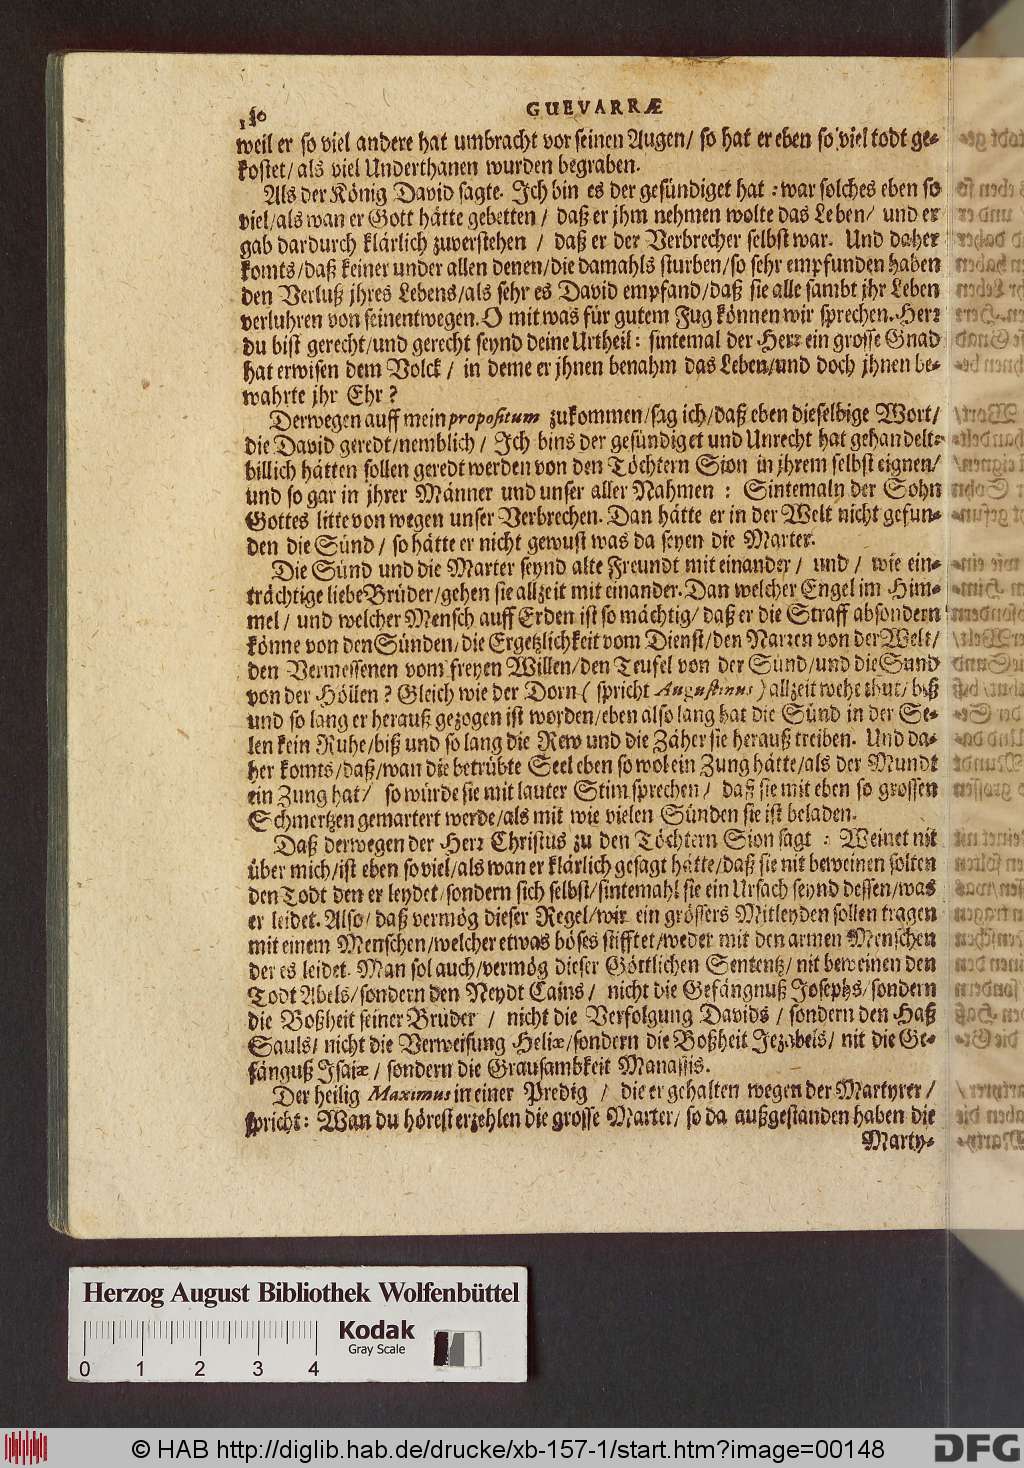 GUEVARRÆ
weil er so viel andere hat umbracht vor seinen Augen/ so hat er eben so viel todt ge-
kostet/als viel Underthanen wurden begraben.
Als der König David sagte. Ich bin es der gesündiget hat : war solches eben so
viel/als wan er Gott hätte gebetten / daß er jhm nehmen wolte das Leben/ und er
gab dardurch klärlich zuverstehen / daß er der Verbrecher selbst war. Und daher
komts/daß keiner under allen denen/die damahls sturben/so sehr empfunden haben
den Verluß jhres Lebens/als sehr es David empfand/daß sie alle sambt jhr Leben
verluhren von seinentwegen. O mit was für gutem Fug können wir sprechen. Herr
du bist gerecht/und gerecht seynd deine Urtheil: sintemal der Herr ein grosse Gnad
hat erwisen dem Volck / in deme er jhnen benahm das Leben/und doch jhnen be-
wahrte jhr Ehr ?
Derwegen auff mein propositum zukommen/sag ich/daß eben dieselbige Wort/
die David geredt/nemblich/ Ich bins der gesündiget und Unrecht hat gehandelt:
billich hätten sollen geredt werden von den Töchtern Sion in jhrem selbst eignen/
und so gar in jhrer Männer und unser aller Nahmen : Sintemaln der Sohn
Gottes litte von wegen unser Verbrechen. Dan hätte er in der Welt nicht gefun-
den die Sünd / so hätte er nicht gewust was da seyen die Marter.
Die Sünd und die Marter seynd alte Freundt mit einander/ und/ wie ein-
trächtige liebe Brüder/gehen sie allzeit mit einander. Dan welcher Engel im Him-
mel / und welcher Mensch auff Erden ist so mächtig/ daß er die Straff absondern
könne von den Sünden/die Ergetzlichkeit vom Dienst/den Narren von der Welt/
den Vermessenen vom freyen Willen/den Teufel von der Sünd/und die Sünd
von der Höllen ? Gleich wie der Dorn ( spricht Augustinus ) allzeit wehe thut/ biß
und so lang er herauß gezogen ist worden/eben also lang hat die Sünd in der See-
len kein Ruhe/biß und so lang die Rew und die Zäher sie herauß treiben. Und da-
her komts/daß/wan die betrübte Seel eben so wol ein Zung hätte/als der Mundt
ein Zung hat/ so würde sie mit lauter Stim sprechen/ daß sie mit eben so grossen
Schmertzen gemartert werde/als mit wie vielen Sünden sie ist beladen.
Daß derwegen der Herr Christus zu den Töchtern Sion sagt : Weinet nit
über mich/ist eben so viel/als wan er klärlich gesagt hätte/daß sie nit beweinen solten
den Todt den er leydet/sondern sich selbst/sintemahl sie ein Ursach seynd dessen/was
er leidet. Also/ daß vermög dieser Regel/wir ein grössers Mitleyden sollen tragen
mit einem Menschen/welcher etwas böses stifftet/weder mit den armen Menschen
der es leidet. Man sol auch/vermög dieser Göttlichen Sententz/ nit beweinen den
Todt Abels/sondern den Neydt Cains / nicht die Gefängnuß Josephs/sondern
die Boßheit seiner Brüder / nicht die Verfolgung Davids / sondern den Haß
Sauls/ nicht die Verweisung Heliæ/sondern die Boßheit Jezabels/ nit die Ge-
fänguß Isaiæ / sondern die Grausambkeit Manassis.
Der heilig Maximus in einer Predig / die er gehalten wegen der Martyrer/
spricht: Wan du hörest erzehlen die grosse Marter/ so da außgestanden haben die
Marty-
Herzog August Bibliothek Wolfenbüttel
Kodak
Gray Scale
0 1 2 3 4
© HAB http://diglib.hab.de/drucke/xb-157-1/start.htm?image=00148
DFG